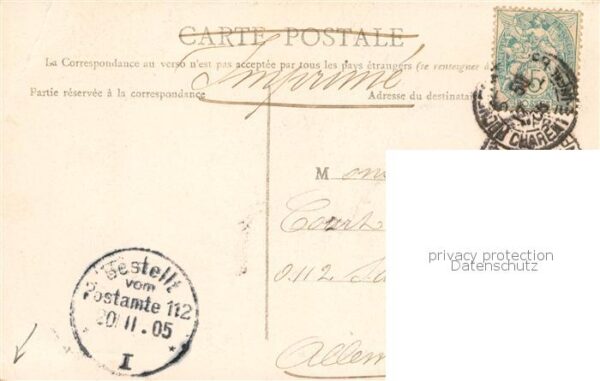 CARTE POSTALE
La Correspondance au verso n'est pas acceptée par tous les pays étrangers (se renseigner à
Imprimé
Partie réservée à la correspondance
Adresse du destinatai
5
CHAREN
M ons
Court
0.112
privacy protection
Datenschutz
Bestellt
vom
Postamte 112
20.11.05
I
Allem